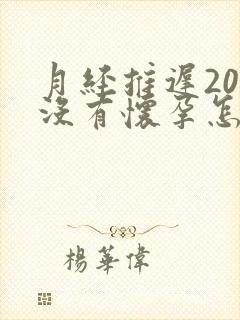 月经推遲20
没有懷孕怎
楊華偉